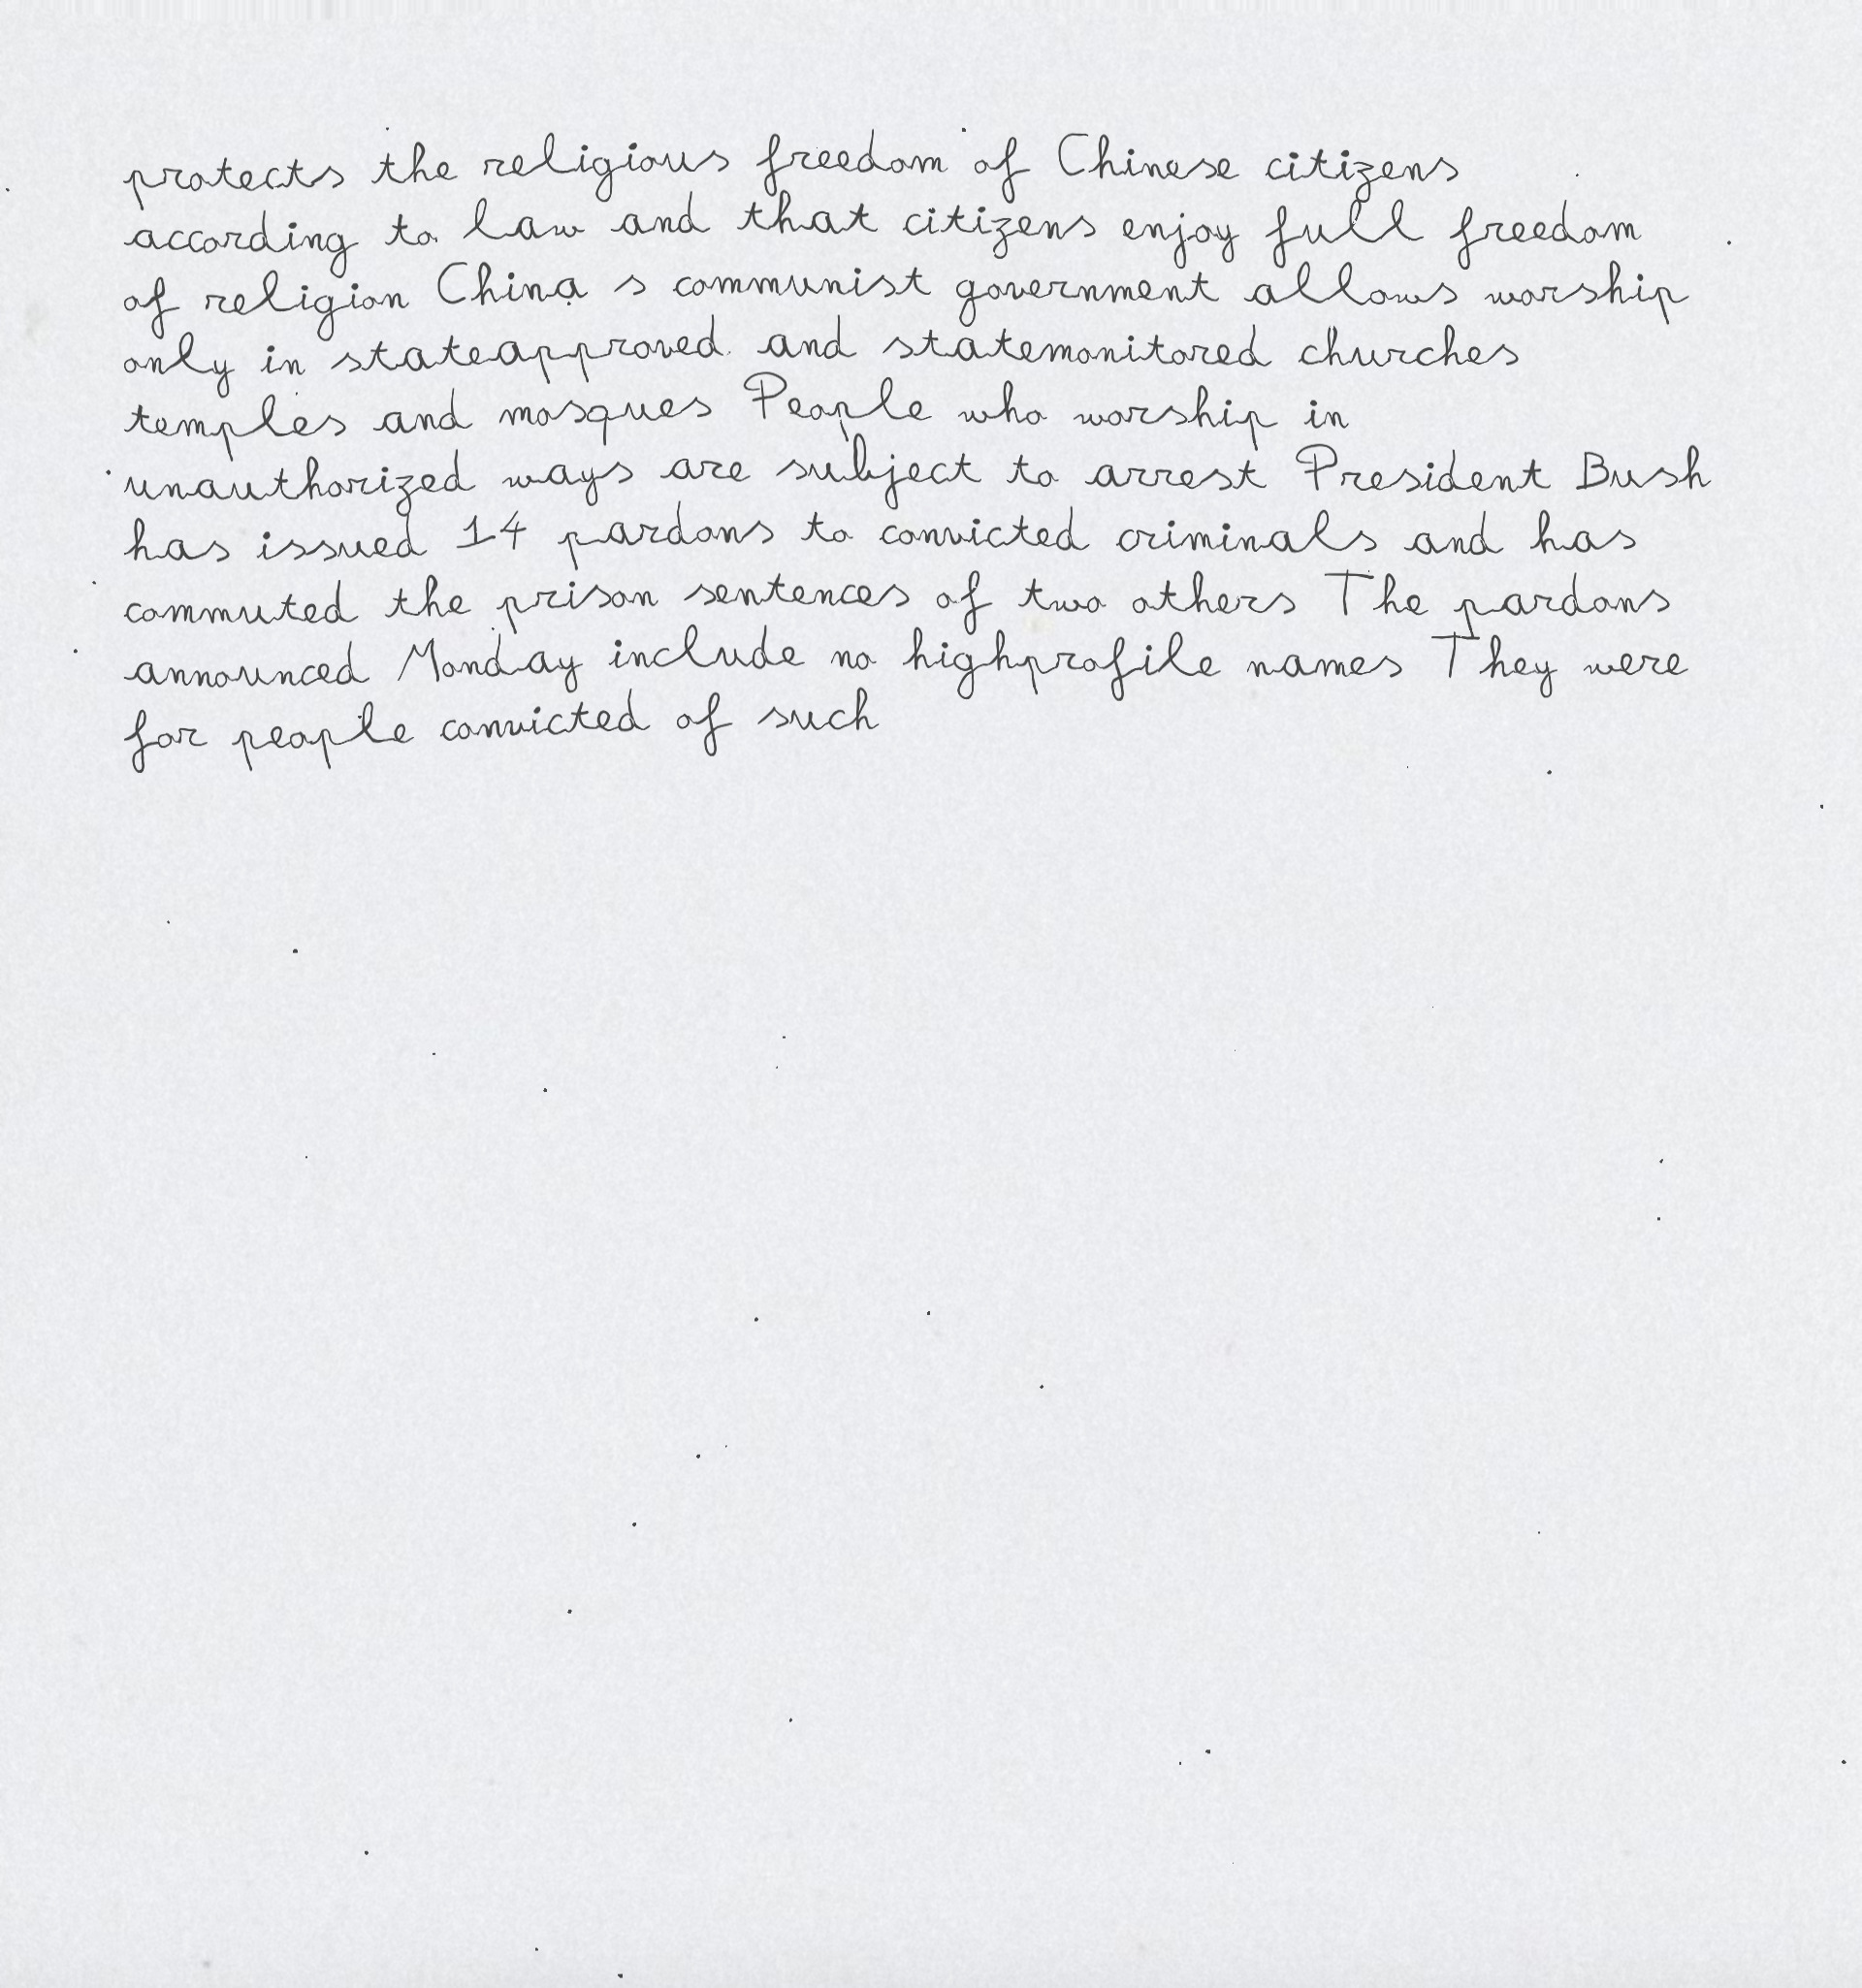 protects the religious freedom of Chinese citizens
according to law and that citizens enjoy full freedom
of religion China s communist government allows worship
only in stateapproved and statemonitored churches
temples and mosques People who worship in
unauthorized ways are subject to arrest President Bush
has issued 14 pardons to convicted criminals and has
commuted the prison sentences of two others The pardons
announced Monday include no highprofile names They were
for people convicted of such